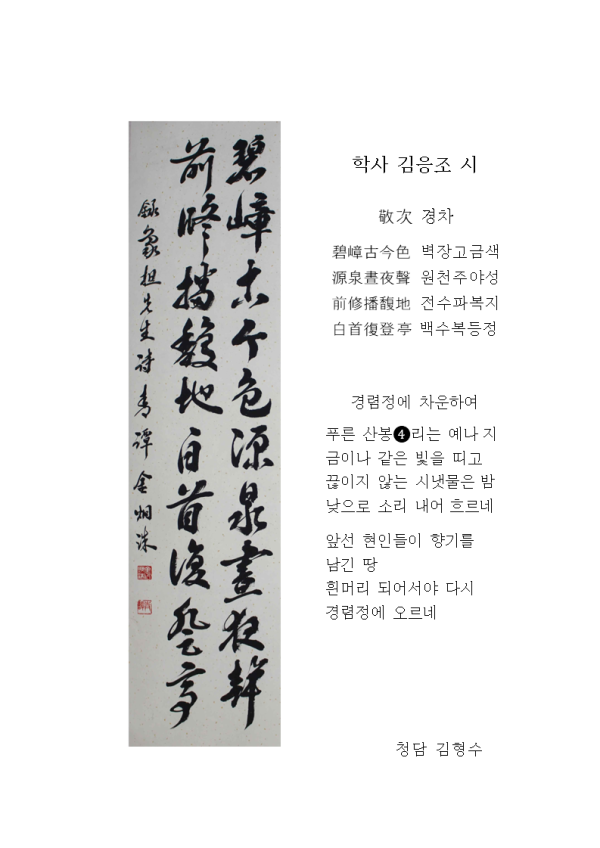 碧嶂古今色源泉晝夜聲
前修播馥地白首復登亭
錄 先生詩 青譚 金炯洙
학사 김응조 시
敬次 경차
碧嶂古今色 벽장고금색
源泉晝夜聲 원천주야성
前修播馥地 전수파복지
白首復登亭 백수복등정
경렴정에 차운하여
푸른 산봉❹리는 예나 지
금이나 같은 빛을 띠고
끊이지 않는 시냇물은 밤
낮으로 소리 내어 흐르네
앞선 현인들이 향기를
남긴 땅
흰머리 되어서야 다시
경렴정에 오르네
청담 김형수